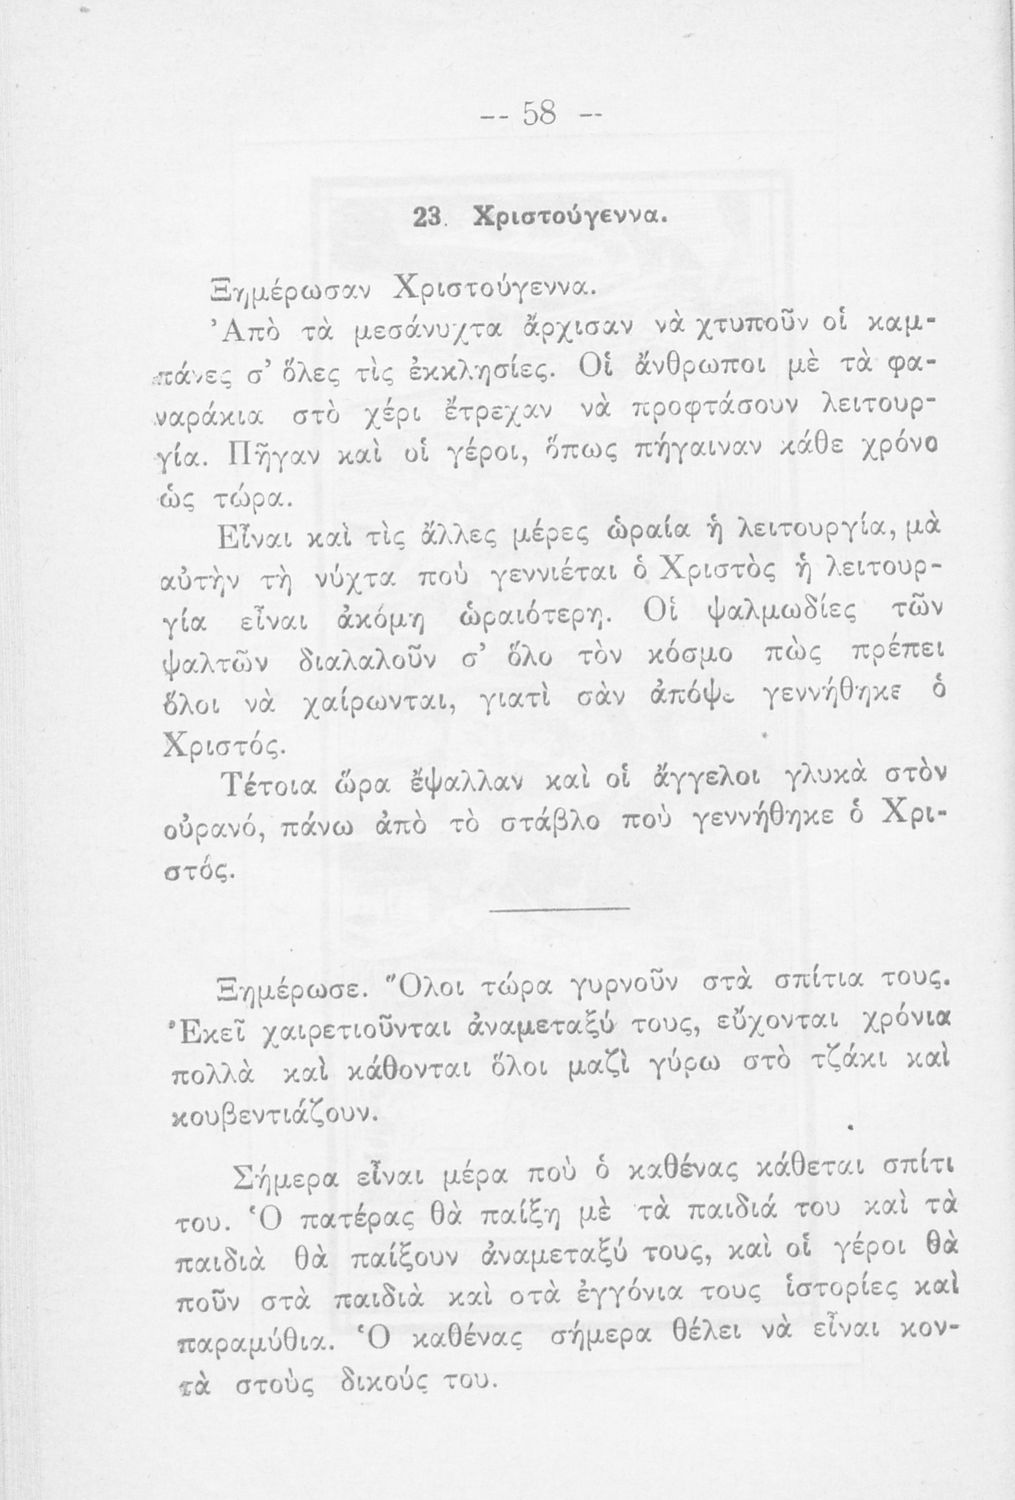 -- 58 --
23. Χριστούγεννα.
Ξημέρωσαν Χριστούγεννα.
Ἀπὸ τὰ μεσάνυχτα ἄρχισαν νὰ χτυποῦν οἱ καμ-
πάνες σ' ὅλες τὶς ἐκκλησίες. Οἱ ἄνθρωποι μὲ τὰ φα-
ναράκια στὸ χέρι ἔτρεχαν νὰ προφτάσουν λειτουρ-
γία. Πῆγαν καὶ οἱ γέροι, ὅπως πήγαιναν κάθε χρόνο
ὡς τώρα.
Εἶναι καὶ τὶς ἄλλες μέρες ὡραία ἡ λειτουργία, μὰ
αὐτὴν τὴ νύχτα ποὺ γεννιέται ὁ Χριστὸς ἡ λειτουρ-
γία εἶναι ἀκόμη ὡραιότερη. Οἱ ψαλμωδίες τῶν
ψαλτῶν διαλαλοῦν σ' ὅλο τὸν κόσμο πὼς πρέπει
ὅλοι νὰ χαίρωνται, γιατὶ σὰν ἀπόψε γεννήθηκε ὁ
Χριστός.
Τέτοια ὥρα ἔψαλλαν καὶ οἱ ἄγγελοι γλυκὰ στὸν
οὐρανό, πάνω ἀπὸ τὸ στάβλο ποὺ γεννήθηκε ὁ Χρι-
στός.
Ξημέρωσε. Ὅλοι τώρα γυρνοῦν στὰ σπίτια τους.
Ἐκεῖ χαιρετιοῦνται ἀναμεταξύ τους, εὔχονται χρόνια
πολλὰ καὶ κάθονται ὅλοι μαζὶ γύρω στὸ τζάκι καὶ
κουβεντιάζουν.
Σήμερα εἶναι μέρα ποὺ ὁ καθένας κάθεται σπίτι
του. Ὁ πατέρας θὰ παίξη μὲ τὰ παιδιά του καὶ τὰ
παιδιὰ θὰ παίξουν ἀναμεταξύ τους, καὶ οἱ γέροι θὰ
ποῦν στὰ παιδιὰ καὶ οτὰ ἐγγόνια τους ἱστορίες καὶ
παραμύθια. Ὁ καθένας σήμερα θέλει νὰ εἶναι κον-
τὰ στοὺς δικούς του.